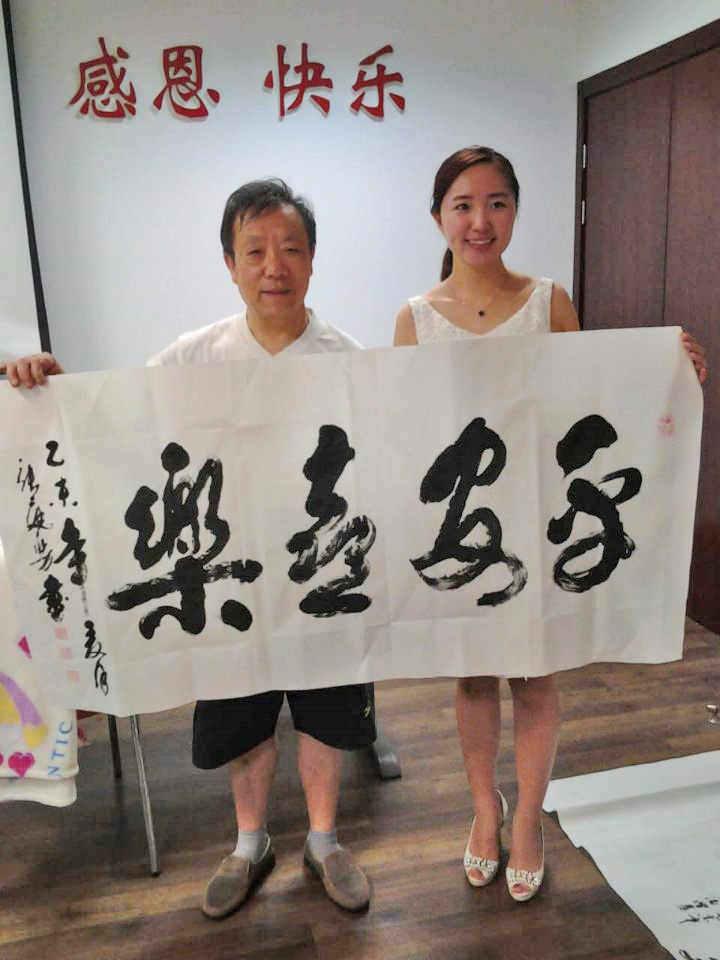 感恩 快乐
平安喜樂
乙未年夏月
NTIC